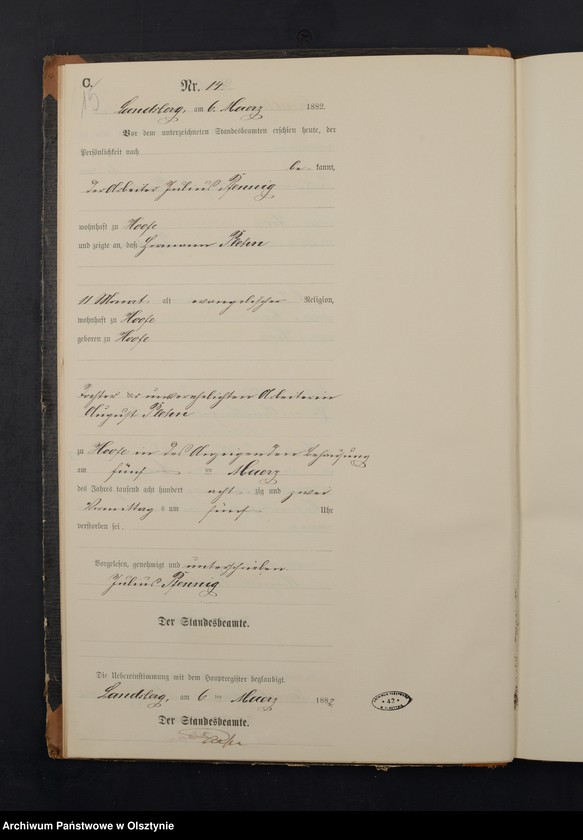 C.
15
Nr. 14.
Landsberg, am 6. Maerz 1882.
Vor dem unterzeichneten Standesbeamten erschien heute, der
Persönlichkeit nach
be kannt,
der Arbeiter Julius Pfennig
wohnhaft zu Hoofe
und zeigte an, daß Hermann
11 Monat alt evangelischer Religion,
wohnhaft zu Hoofe
geboren zu Hoofe
Tochter der unverehelichten Arbeiterin
August
zu Hoofe in des Anzeigenden Behausung
am fünf ten Maerz
des Jahres tausend acht hundert acht zig und zwei
Vormittag s um fünf Uhr
verstorben sei.
Vorgelesen, genehmigt und unterschrieben
Julius Pfennig
Der Standesbeamte.
Die Uebereinstimmung mit dem Hauptregister beglaubigt.
Landsberg, am 6 ten Maerz 1882
Der Standesbeamte.
* 42 *
Archiwum Państwowe w Olsztynie